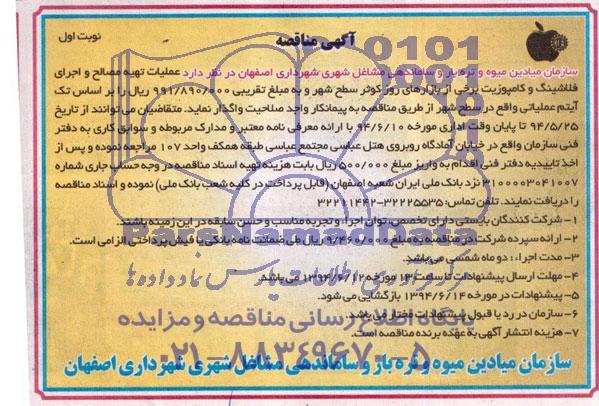 آگهی مناقصه
نوبت اول
سازمان میادین میوه و تره بار و ساماندهی مشاغل شهری شهرداری اصفهان در نظر دارد عملیات تهیه مصالح و اجرای
فلاشینگ و کامپوزیت برخی از بازارهای روز کوثر سطح شهر و به مبلغ تقریبی ۹۹۱/۸۹۰/۰۰۰ ریال را بر اساس تک
آیتم عملیاتی واقع در سطح شهر از طریق مناقصه به پیمانکار واجد صلاحیت واگذار نماید. متقاضیان می‌توانند از تاریخ
۹۴/۵/۲۵ تا پایان وقت اداری مورخه ۹۴/۶/۱۰ با ارائه معرفی نامه معتبر و مدارک مربوطه و سوابق کاری به دفتر
فنی سازمان واقع در خیابان آمادگاه روبروی هتل عباسی مجتمع عباسی طبقه همکف واحد ۱۰۷ مراجعه نموده و پس از
اخذ تاییدیه دفتر فنی اقدام به واریز مبلغ ۵۰۰/۰۰۰ ریال بابت هزینه تهیه اسناد مناقصه در وجه حساب جاری شماره
۳۱۰۰۰۰۳۰۴۱۰۰۷ نزد بانک ملی ایران شعبه اصفهان (قابل پرداخت در کلیه شعب بانک ملی) نموده و اسناد مناقصه
را دریافت نمایند. تلفن تماس: ۳۲۲۲۵۵۳۵-۳۲۲۱۱۴۴۲
۱- شرکت کنندگان بایستی دارای تخصص، توان اجرا و تجربه مناسب و حسن سابقه در این زمینه باشند.
۲- ارائه سپرده شرکت در مناقصه به مبلغ ۹/۴۶۰/۰۰۰ ریال طی ضمانت نامه بانکی یا فیش پرداختی الزامی است.
۳- مدت اجراء: دو ماه شمسی می باشد.
۴- مهلت ارسال پیشنهادات تا ساعت ۱۳ مورخه ۱۳۹۴/۶/۱۲ می باشد.
۵- پیشنهادات در مورخه ۱۳۹۴/۶/۱۴ بازگشایی می شود.
۶- سازمان در رد یا قبول پیشنهادات مختار می باشد.
۷- هزینه انتشار آگهی به عهده برنده مناقصه است.
سازمان میادین میوه و تره بار و ساماندهی مشاغل شهری شهرداری اصفهان
ParsNamadData
پایگاه اطلاع رسانی مناقصه و مزایده
۰۲۱-۸۸۳۴۹۶۷۰-۵